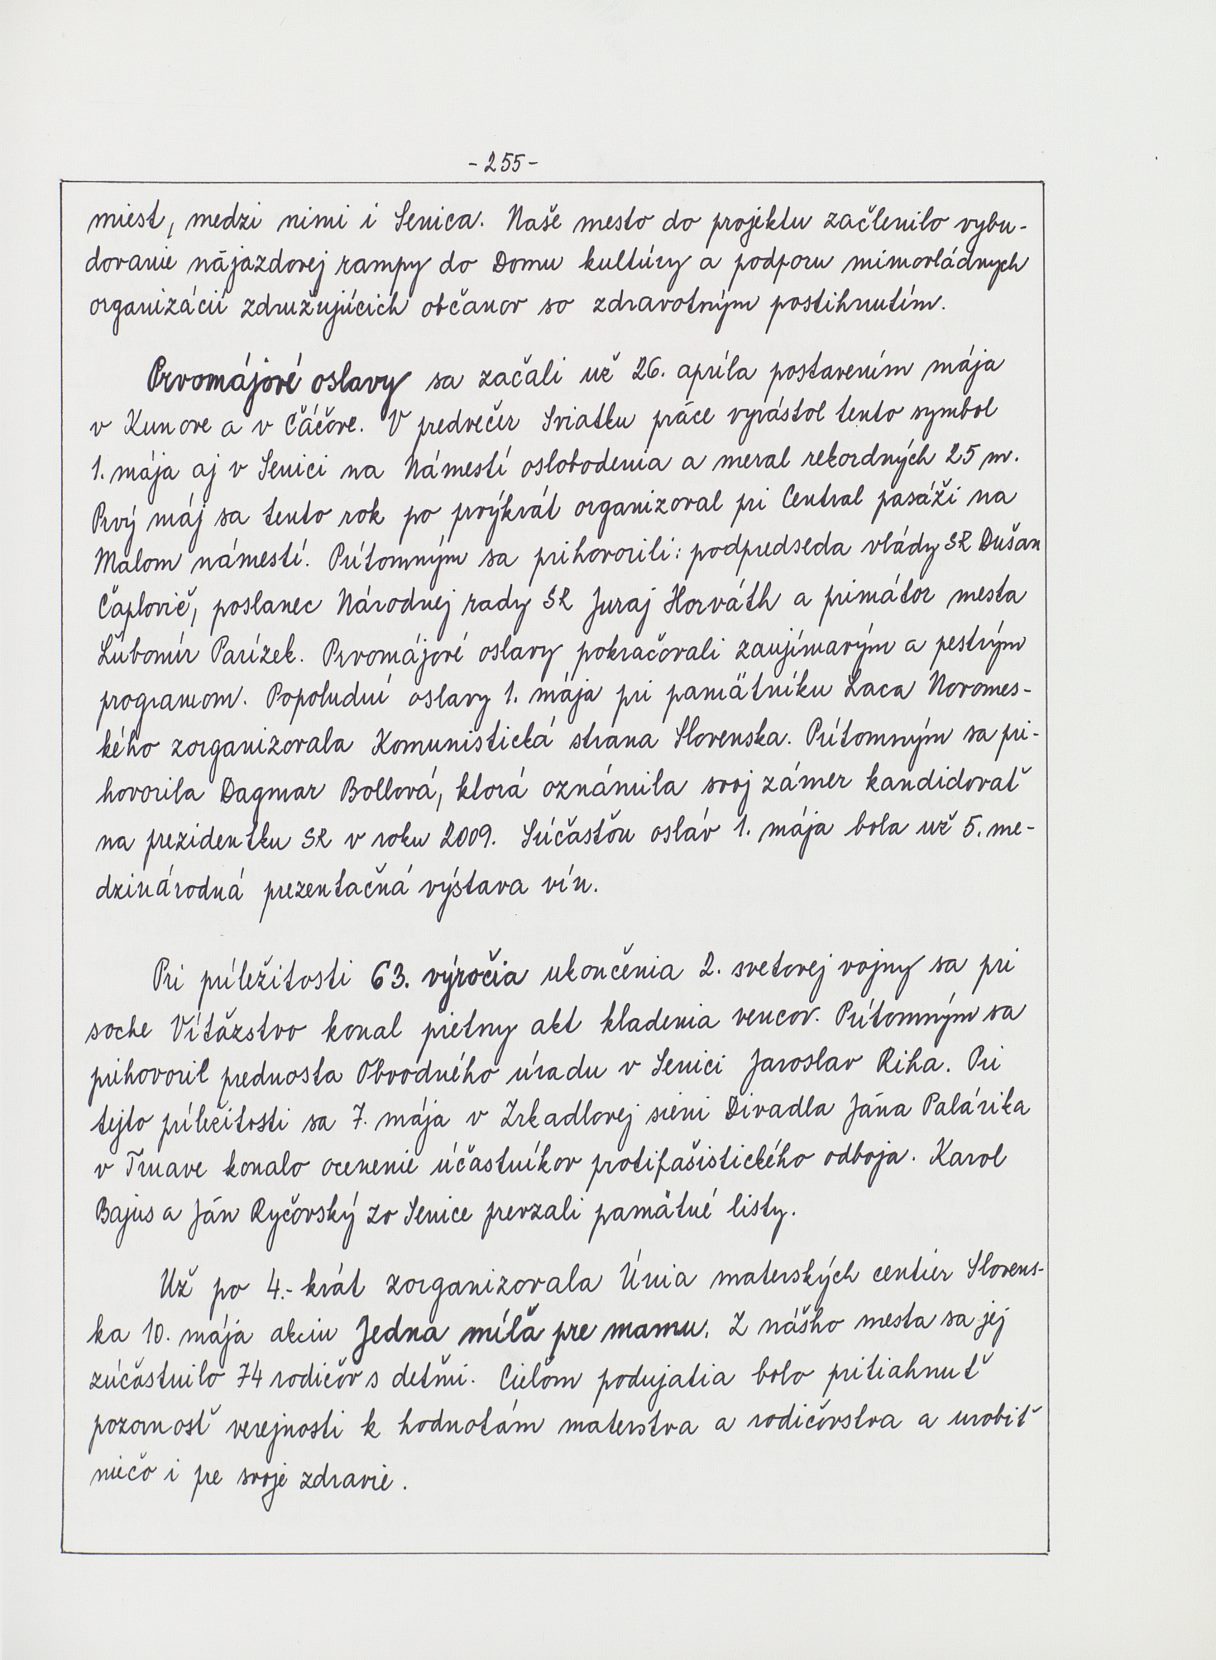 -255-
miest, medzi nimi i Senica. Naše mesto do projektu začlenilo vybu-
dovanie nájazdovej rampy do Domu kultúry a podporu mimovládnych
organizácií združujúcich občanov so zdravotným postihnutím.
Prvomájové oslavy sa začali už 26. apríla postavením mája
v Kunove a v Čáčove. V predvečer Sviatku práce vyrástol tento symbol
1. mája aj v Senici na Námestí oslobodenia a meral rekordných 25 m.
Prvý máj sa tento rok po prvýkrát organizoval pri Central pasáži na
Malom námestí. Prítomným sa prihovorili: podpredseda vlády SR Dušan
Čaplovič, poslanec Národnej rady SR Juraj Horváth a primátor mesta
Ľubomír Parízek. Prvomájové oslavy pokračovali zaujímavým a pestrým
programom. Popoludní oslavy 1. mája pri pamätníku Laca Novomes-
kého zorganizovala Komunistická strana Slovenska. Prítomným sa pri-
hovorila Dagmar Bollová, ktorá oznámila svoj zámer kandidovať
na prezidentku SR v roku 2009. Súčasťou osláv 1. mája bola už 5. me-
dzinárodná prezentačná výstava vín.
Pri príležitosti 63. výročia ukončenia 2. svetovej vojny sa pri
soche Víťazstvo konal pietny akt kladenia vencov. Prítomným sa
prihovoril prednosta Obvodného úradu v Senici Jaroslav Riha. Pri
tejto príležitosti sa 7. mája v Zrkadlovej sieni Divadla Jána Palárika
v Trnave konalo ocenenie účastníkov protifašistického odboja. Karol
Bajus a Ján Ryčovský zo Senice prevzali pamätné listy.
Už po 4.-krát zorganizovala Únia materských centier Slovens-
ka 10. mája akciu Jedna míľa pre mamu. Z nášho mesta sa jej
zúčastnilo 74 rodičov s deťmi. Cieľom podujatia bolo pritiahnuť
pozornosť verejnosti k hodnotám materstva a rodičovstva a urobiť
niečo i pre svoje zdravie.